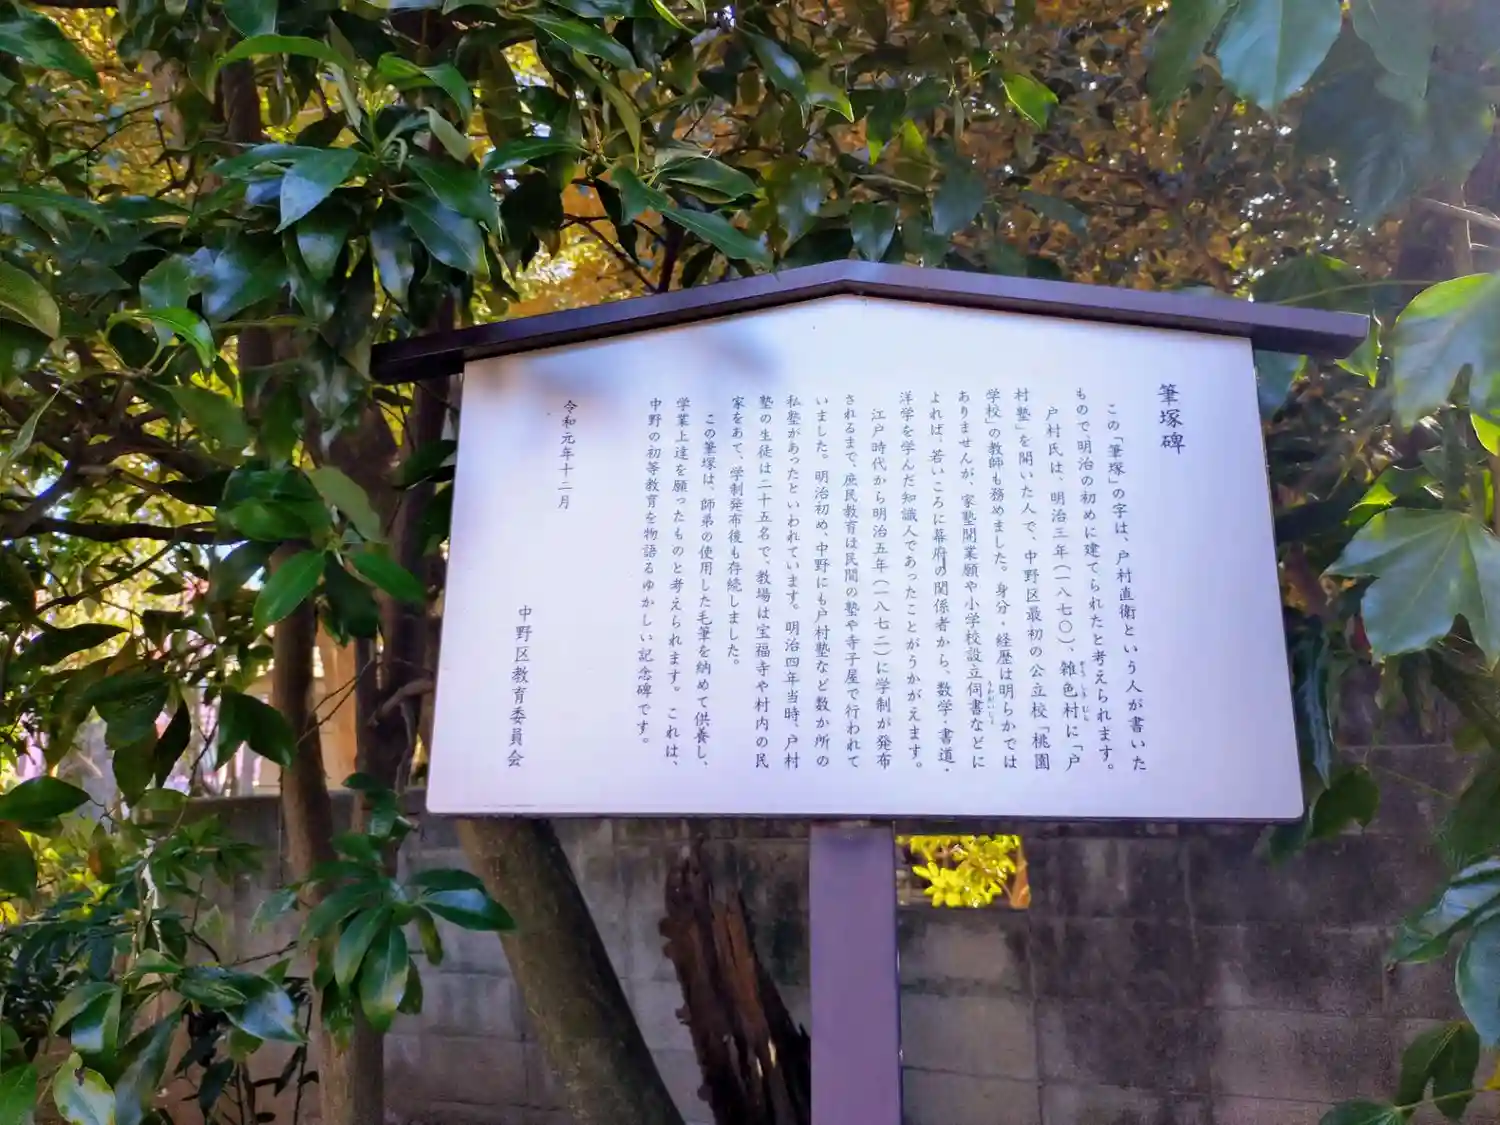 筆塚碑
この「筆塚」の字は、戸村直衛という人が書いた
もので、明治の初めに建てられたと考えられます。
戸村氏は、明治三年(一八七〇)、雑色村に「戸
ぞうしきむら
村塾」を開いた人で、中野区最初の公立校「桃園
学校」の教師も務めました。身分・経歴は明らかでは
ありませんが、家塾開業願や小学校設立伺書などに
うかがいしょ
よれば、若いころに幕府の関係者から、数学・書道・
洋学を学んだ知識人であったことがうかがえます。
江戸時代から明治五年(一八七二)に学制が発布
されるまで、庶民教育は民間の塾や寺子屋で行われて
いました。明治初め、中野にも戸村塾など数か所の
私塾があったといわれています。明治四年当時、戸村
塾の生徒は二十五名で、教場は宝福寺や村内の民
家をあて、学制発布後も存続しました。
この筆塚は、師弟の使用した毛筆を納めて供養し、
学業上達を願ったものと考えられます。これは、
中野の初等教育を物語るゆかしい記念碑です。
令和元年十二月
中野区教育委員会